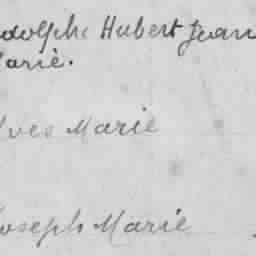 dolphe Hubert Jean
arie.
Yves Marie
Joseph Marie